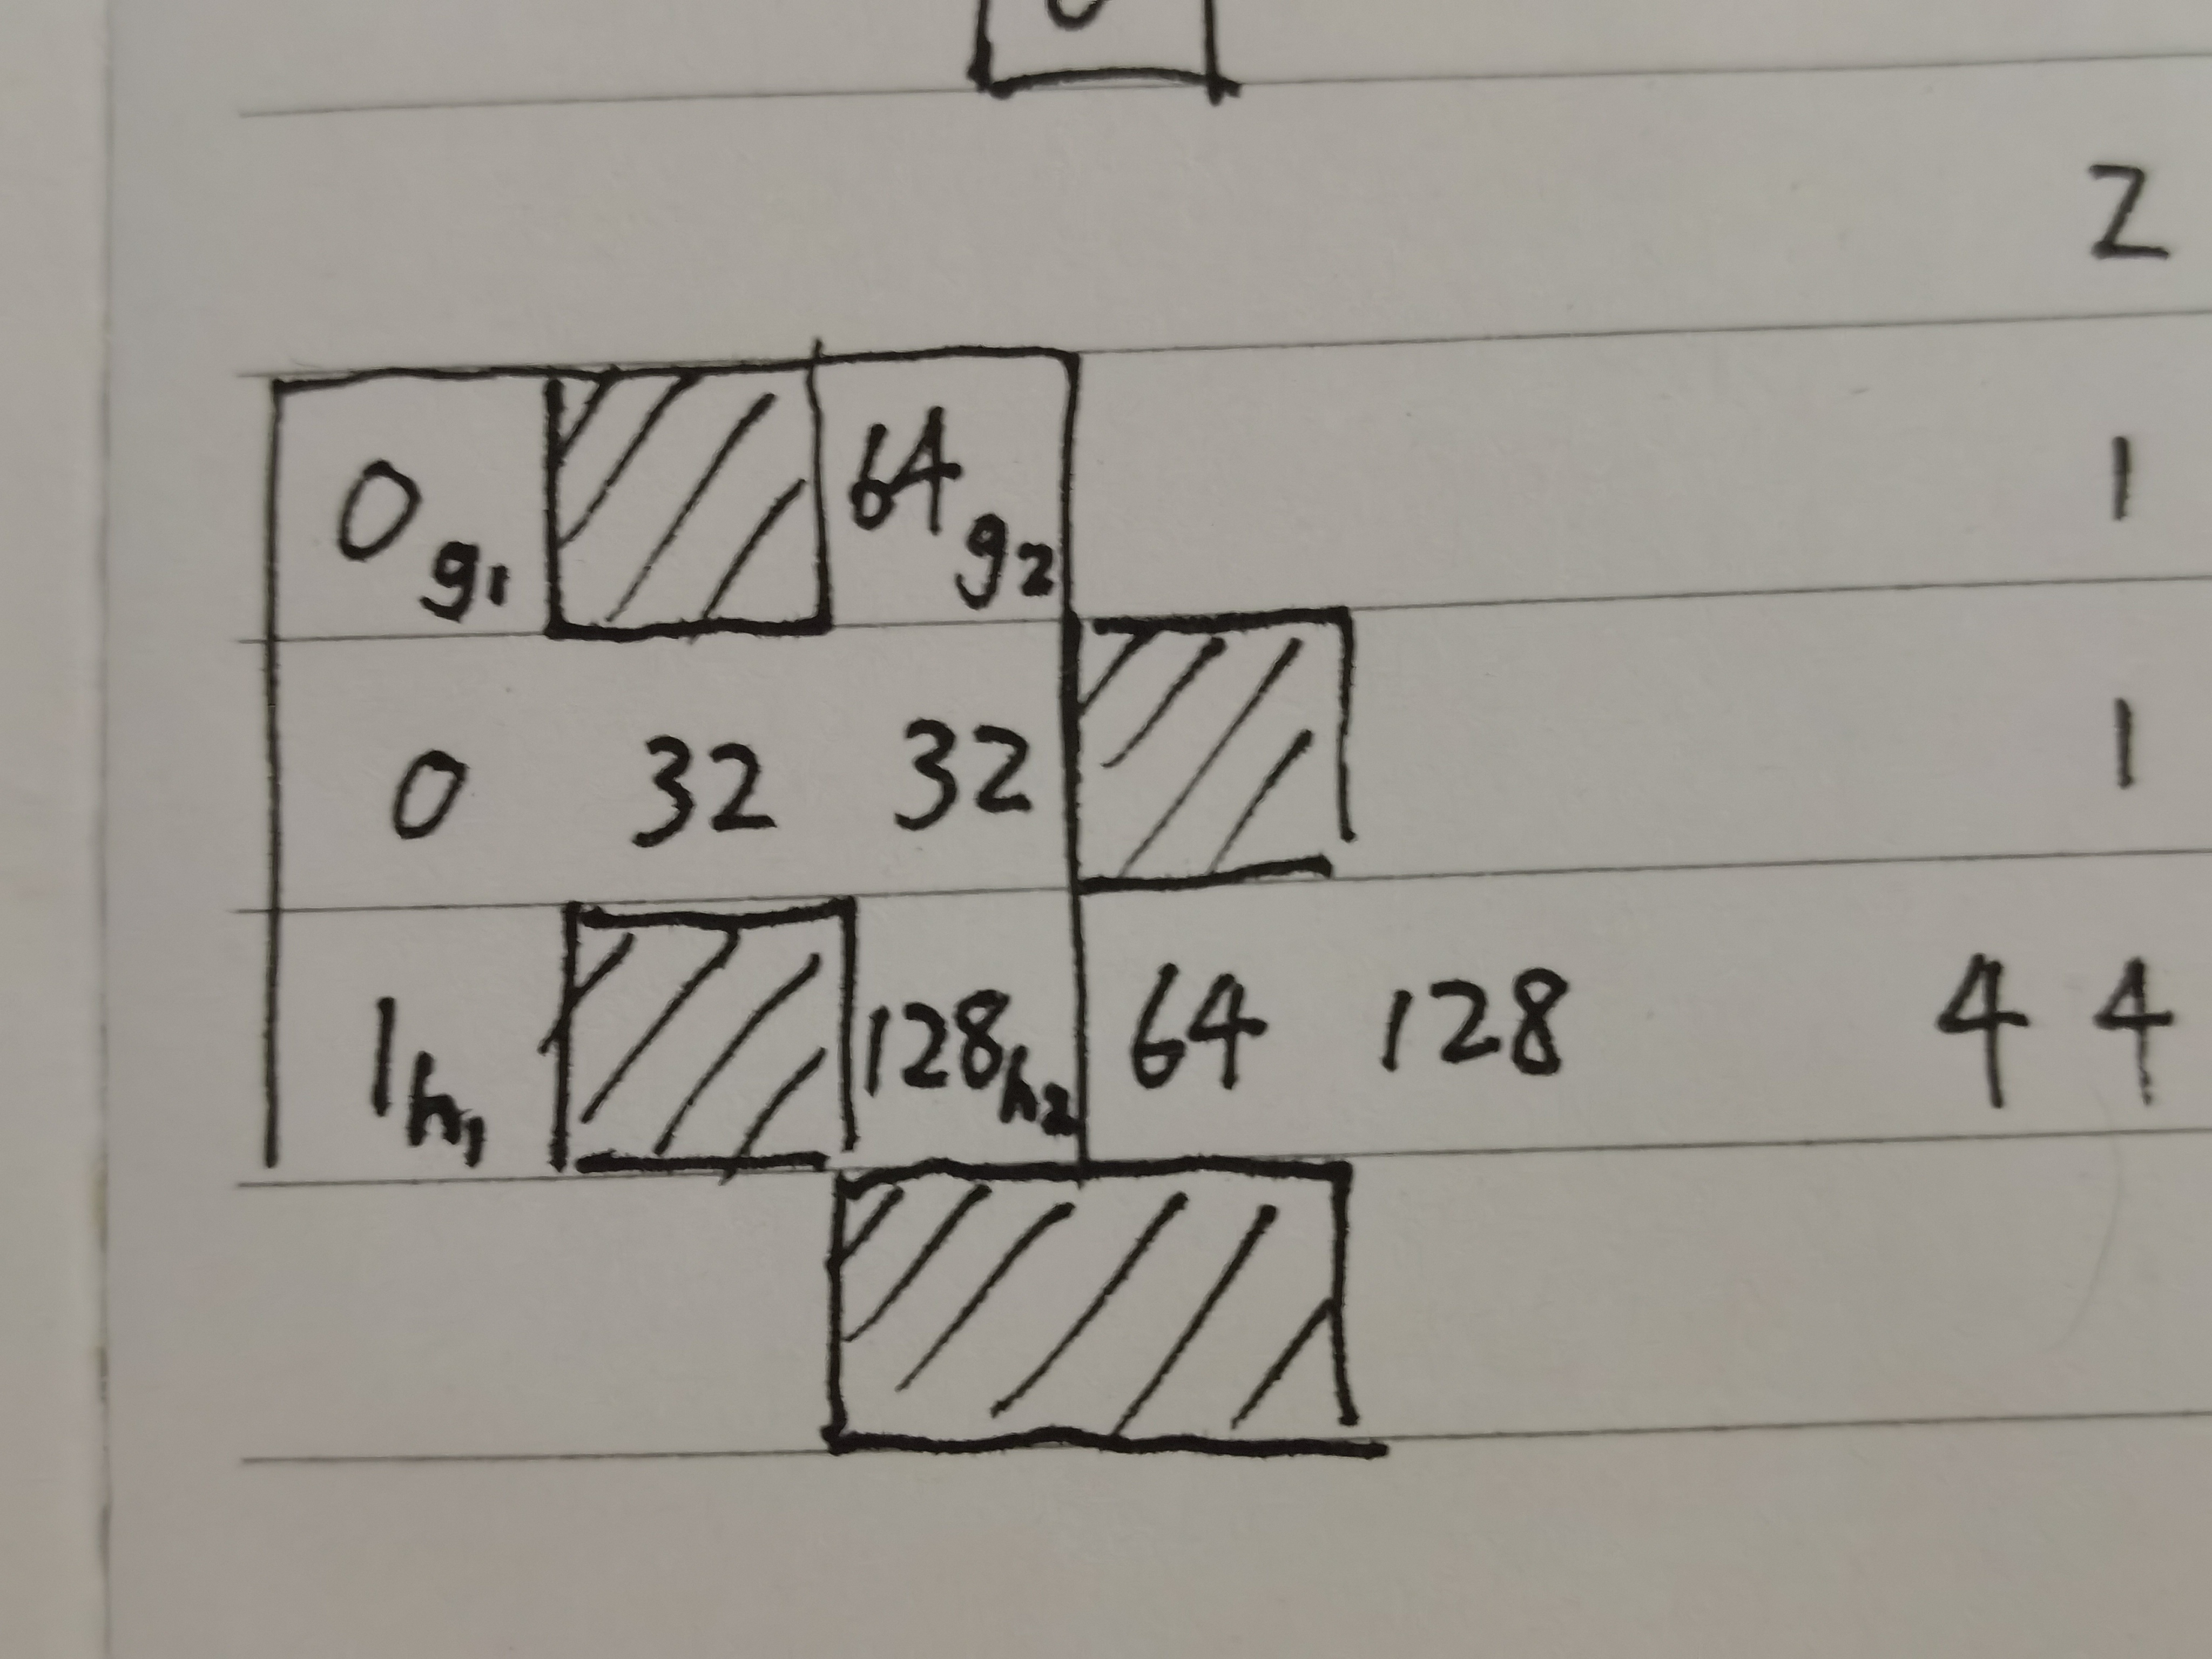 2
0 g1 64 g2 1
0 32 32 1
1 h1 128 h2 64 128 4 4